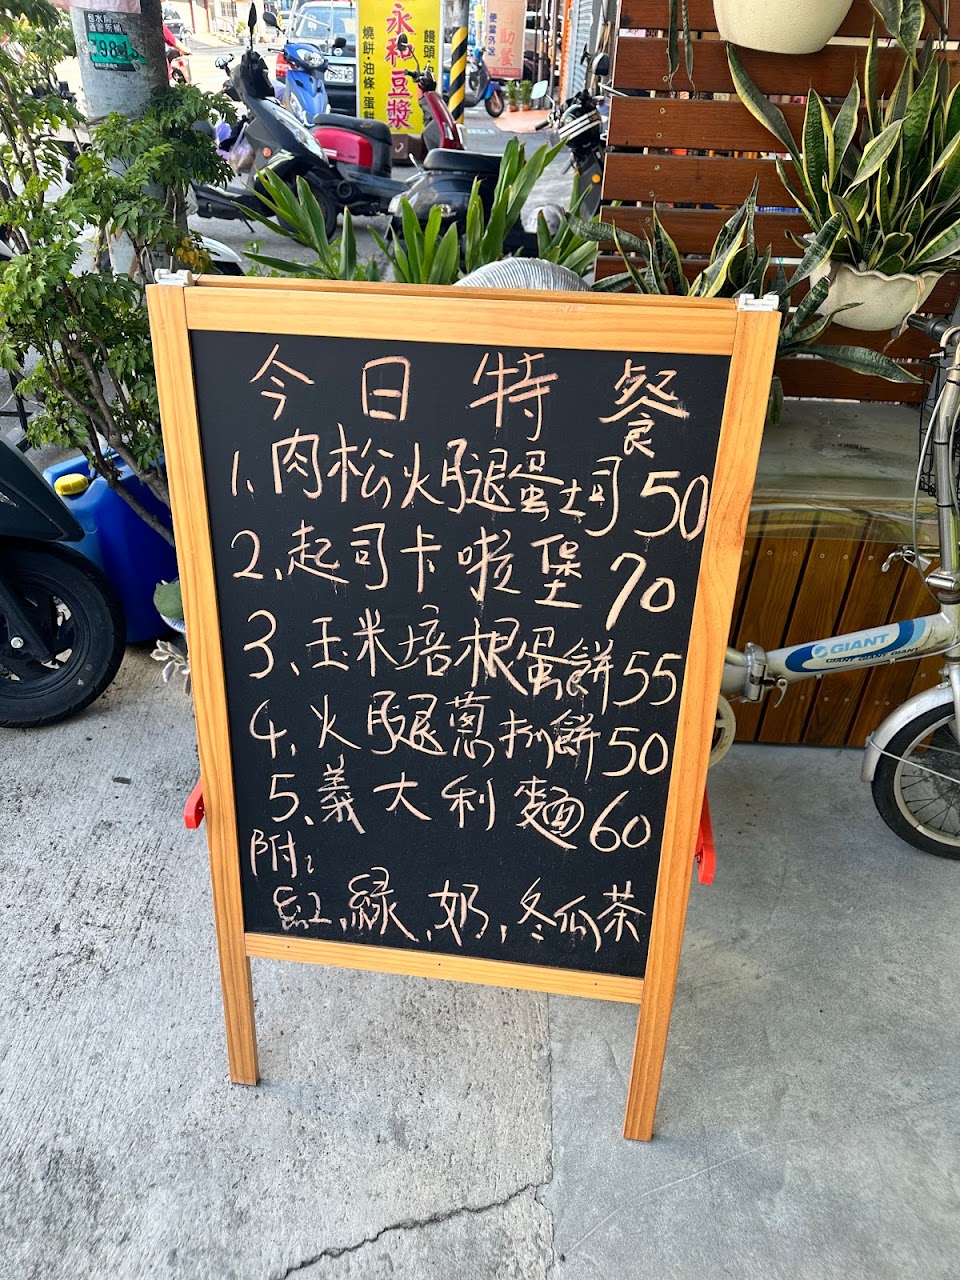 永和豆漿
燒餅·油條·蛋餅
饅頭
今日特餐
1.肉松火腿蛋土司50
2.起司卡啦堡70
3.玉米培根蛋餅55
4.火腿蔥抓餅50
5.義大利麵60
附:
紅,綠,奶,冬瓜茶
GIANT
GIANT GIANT GIANT